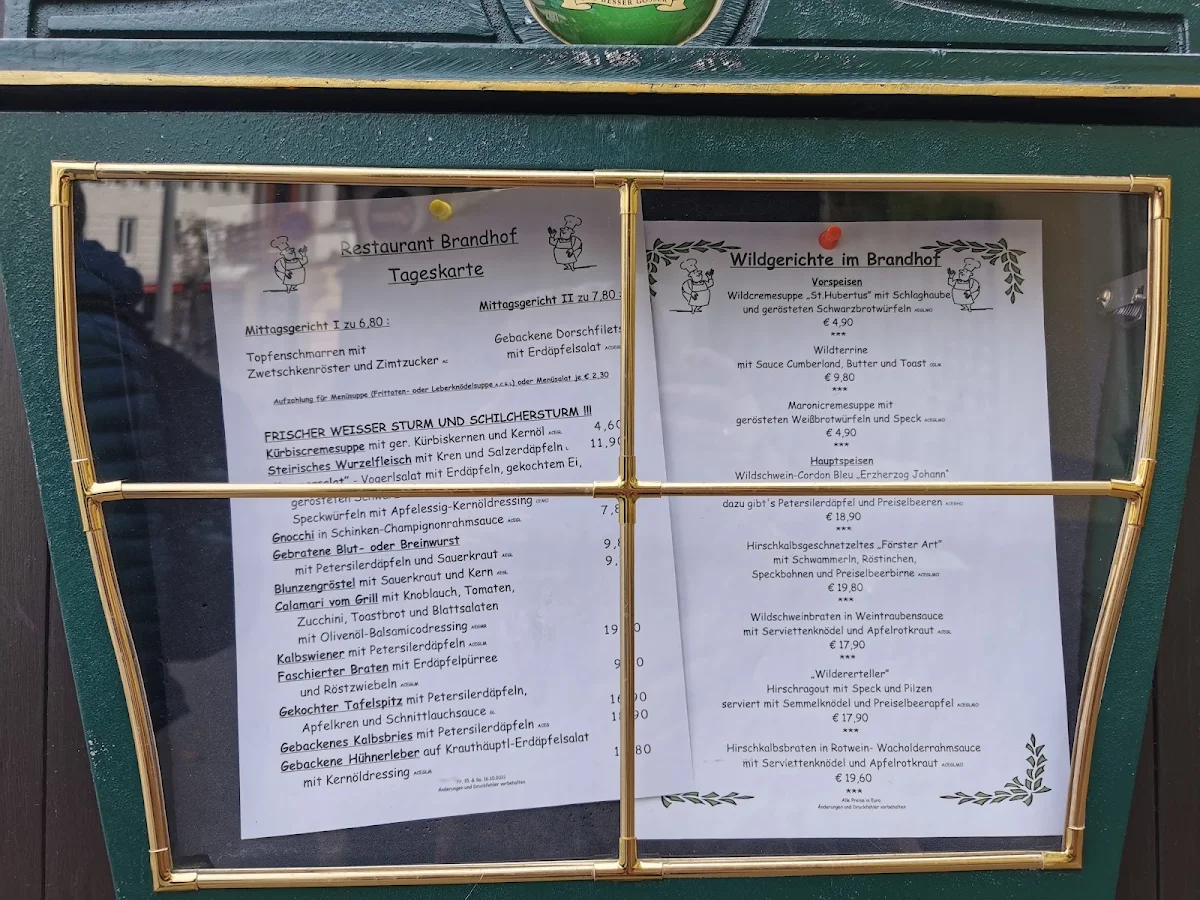 BESSER GÖSSER
Restaurant Brandhof
Tageskarte
Mittagsgericht I zu 6,80 :
Mittagsgericht II zu 7,80 :
Topfenschmarren mit
Zwetschkenröster und Zimtzucker
Gebackene Dorschfilets
mit Erdäpfelsalat
Aufzahlung für Menüsuppe (Frittaten- oder Leberknödelsuppe A,C,G,L) oder Menüsalat je € 2,30
FRISCHER WEISSER STURM UND SCHILCHERSTURM !!!
Kürbiscremesuppe mit ger. Kürbiskernen und Kernöl 4,60
Steirisches Wurzelfleisch mit Kren und Salzerdäpfeln L 11,90
- Vogerlsalat mit Erdäpfeln, gekochtem Ei,
gerösteten
Speckwürfeln mit Apfelessig-Kernöldressing
Gnocchi in Schinken-Champignonrahmsauce
Gebratene Blut- oder Breinwurst
mit Petersilerdäpfeln und Sauerkraut
Blunzengröstel mit Sauerkraut und Kern
Calamari vom Grill mit Knoblauch, Tomaten,
Zucchini, Toastbrot und Blattsalaten
mit Olivenöl-Balsamicodressing
Kalbswiener mit Petersilerdäpfeln
Faschierter Braten mit Erdäpfelpürree
und Röstzwiebeln
Gekochter Tafelspitz mit Petersilerdäpfeln,
Apfelkren und Schnittlauchsauce
Gebackenes Kalbsbries mit Petersilerdäpfeln
Gebackene Hühnerleber auf Krauthäuptl-Erdäpfelsalat
mit Kernöldressing
Änderungen und Druckfehler vorbehalten
Wildgerichte im Brandhof
Vorspeisen
Wildcremesuppe „St.Hubertus" mit Schlaghaube
und gerösteten Schwarzbrotwürfeln
€ 4,90
***
Wildterrine
mit Sauce Cumberland, Butter und Toast
€ 9,80
***
Maronicremesuppe mit
gerösteten Weißbrotwürfeln und Speck
€ 4,90
***
Hauptspeisen
Wildschwein-Cordon Bleu „Erzherzog Johann"
dazu gibt's Petersilerdäpfel und Preiselbeeren
€ 18,90
***
Hirschkalbsgeschnetzeltes „Förster Art"
mit Schwammerln, Röstinchen,
Speckbohnen und Preiselbeerbirne
€ 19,80
***
Wildschweinbraten in Weintraubensauce
mit Serviettenknödel und Apfelrotkraut
€ 17,90
***
„Wildererteller"
Hirschragout mit Speck und Pilzen
serviert mit Semmelknödel und Preiselbeerapfel
€ 17,90
***
Hirschkalbsbraten in Rotwein- Wacholderrahmsauce
mit Serviettenknödel und Apfelrotkraut
€ 19,60
***
Alle Preise in Euro
Änderungen und Druckfehler vorbehalten